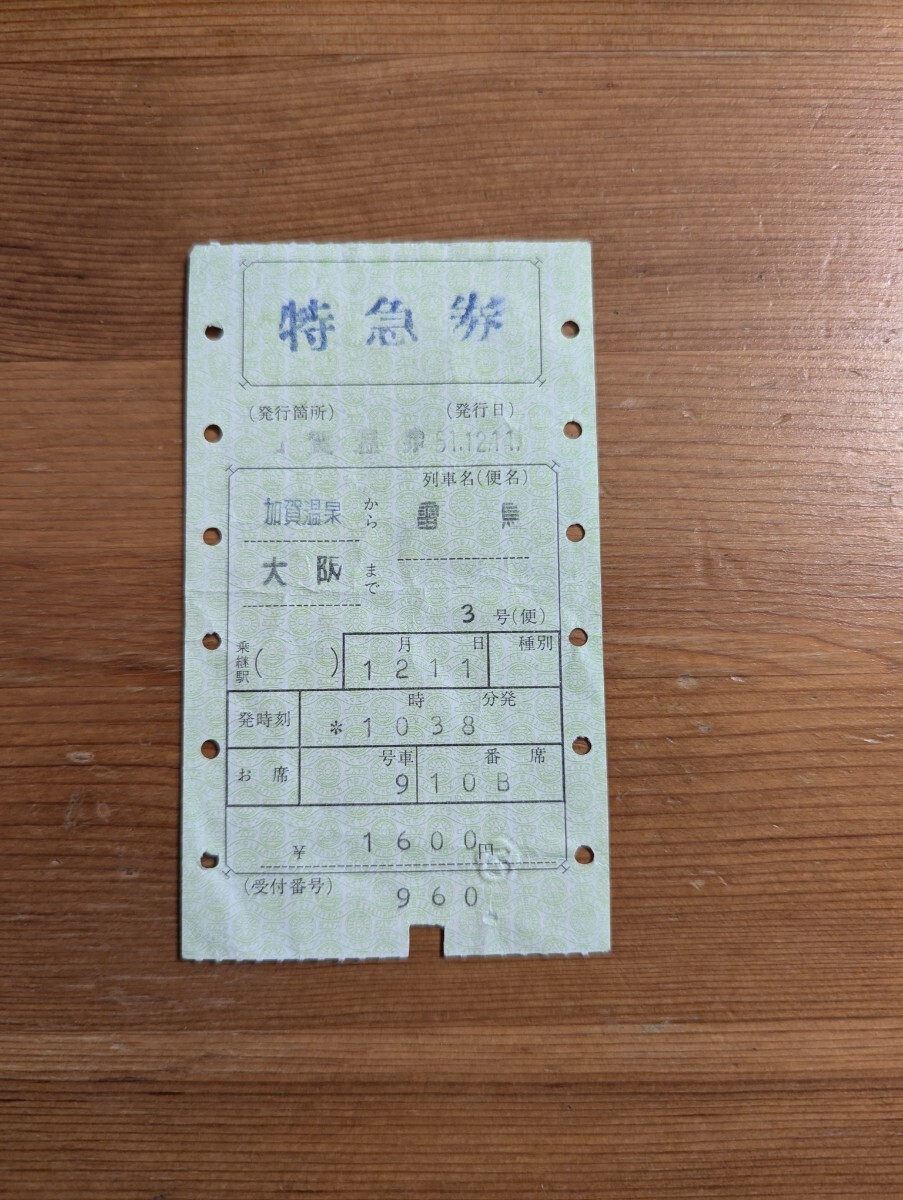 特急券
(発行箇所) (発行日)
51.12.
列車名(便名)
加賀温泉 から 雷鳥
大阪 まで
3 号(便)
乗継駅( ) 月 日 種別
1211
発時刻 時 分発
*1038
お席 号車 番席
9 10B
¥ 1600 円
(受付番号) 960